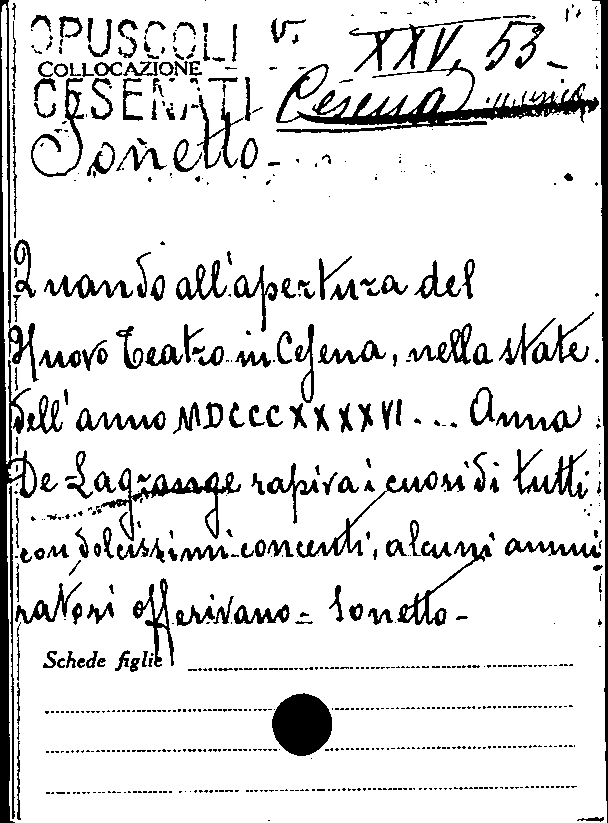 OPUSCOLI V. XXV. 53
COLLOCAZIONE
CESENATI Cesena
Sonetto -
Quando all'apertura del
Nuovo Teatro in Cesena, nella state
dell'anno MDCCCXXXXVI... Anna
De Lagrange rapiva i cuori di tutti
con dolcissimi concenti, alcuni ammi
ratori offerivano - Sonetto -
Schede figlie